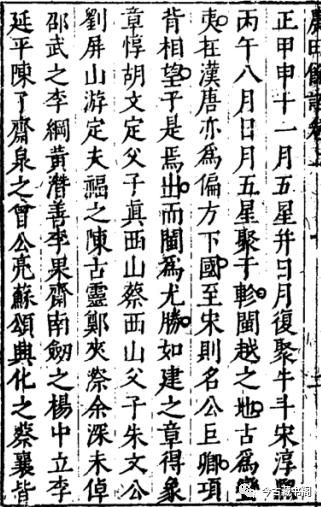 農田餘話卷上
正甲申十一月五星并日月復聚牛斗宋淳熙
丙午八月日月五星聚于軫閩越之地古為蠻
夷在漢唐亦為偏方下國至宋則名公巨卿項
背相望于是焉出而閩為尤勝如建之章得象
章惇胡文定父子真西山蔡西山父子朱文公
劉屏山游定夫福之陳古靈鄭夾漈余深未倬
邵武之李綱黃潛善李果齋南劒之楊中立李
延平陳了齋泉之曾公亮蘇頌興化之蔡襄皆